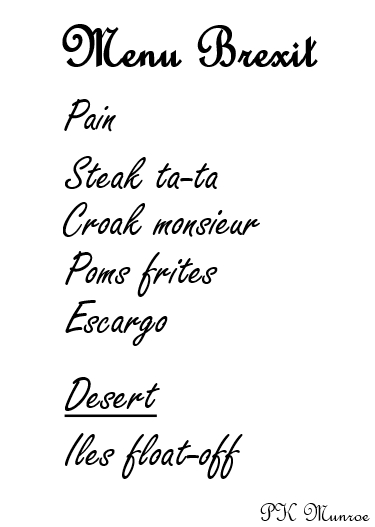 Menu Brexit
Pain
Steak ta-ta
Croak monsieur
Poms frites
Escargo
Desert
Iles float-off
PK Munroe